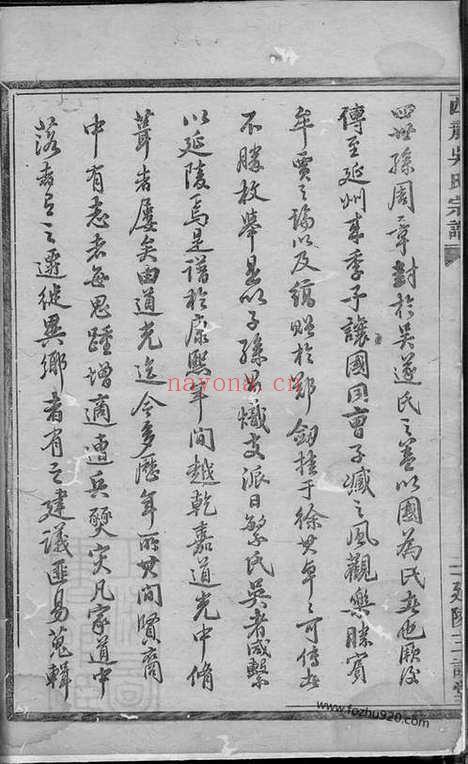 西巖吳氏宗譜
四世孫周章封於吳遂氏之蓋以國為氏也厥後
傳至延州來季子讓國同曹子臧之風觀樂勝賓
牟賈之論以及縞贈於鄭劍挂于徐其卓之可傳者
不勝枚舉是以子孫昌熾支派日繁氏吳者咸繫
以延陵焉是譜於康熙年間越乾嘉道光中脩
葺者屢矣由道光迄今多歷年所其間賢裔
中有志者每思踵增適遭兵燹突凡家道中
落者有之遷徙異鄉者有之建議匪易蒐輯
二 延陵三讓堂
nayona.cn
www.fozhu920.com